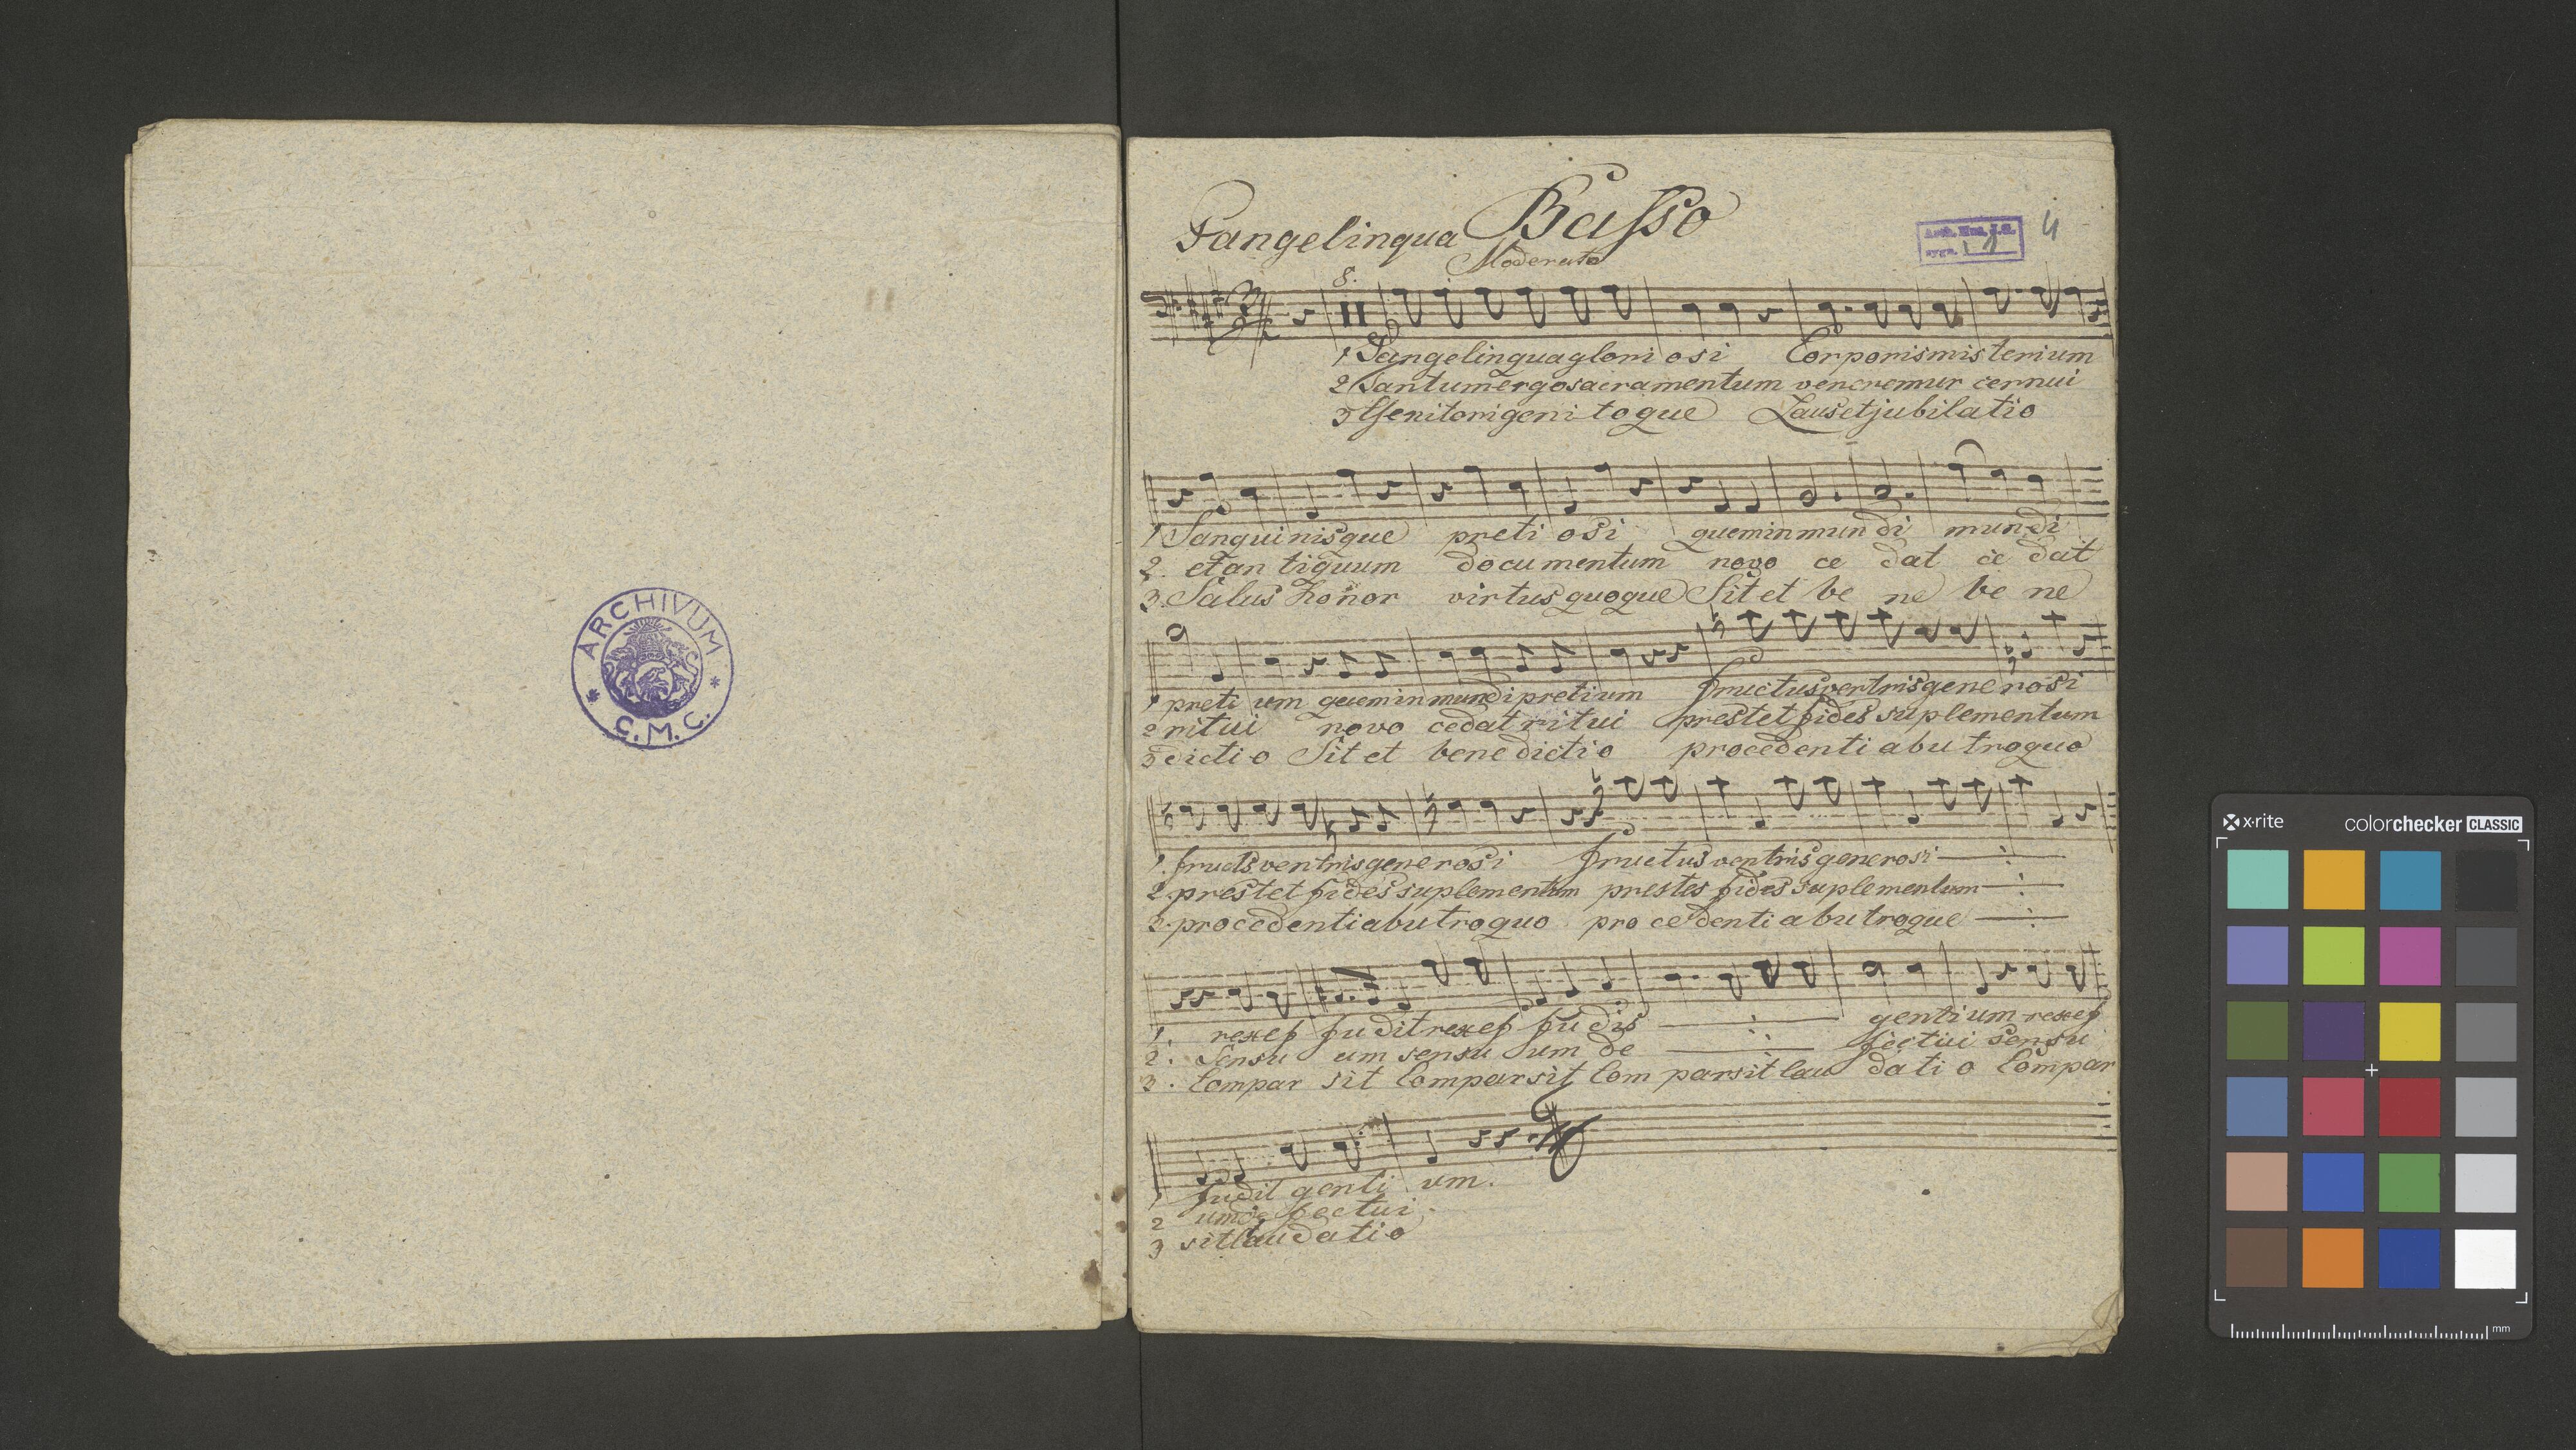 ARCHIVUM
* C.M.C. *
Pange lingua Basso
Moderato
4
sygn. 1
8.
1 Pange lingua gloriosi Corporis misterium
2 Tantum ergo sacramentum veneremur cernui
3 Genitori genitoque Laus et jubilatio
1 Sanguinisque preti osi quem in mundi mundi
2. et an tiquum documentum novo ce dat ce dat
3. Salus honor virtus quoque Sit et be ne be ne
1 preti um quem in mundi pretium fructus ventris generosi
2 ritui novo cedat ritui prestet fides suplementum
3 dicti o Sit et bene dictio procedenti abu troquo
1. fructs ventris generosi fructus ventris generosi
2. prestet fides suplementum prestes fides suplementum
3. procedenti abutroquo pro cedenti abutroque
1. rex ef fu dit rex ef fu dis gentium rex ef
2. Sensu um sensu um de fectui sensu
3. Compar sit Compar sit Com par sit lau da ti o Compar
1 fudit genti um.
2 um de fectui.
3 sit laudatio
x-rite colorchecker CLASSIC
mm